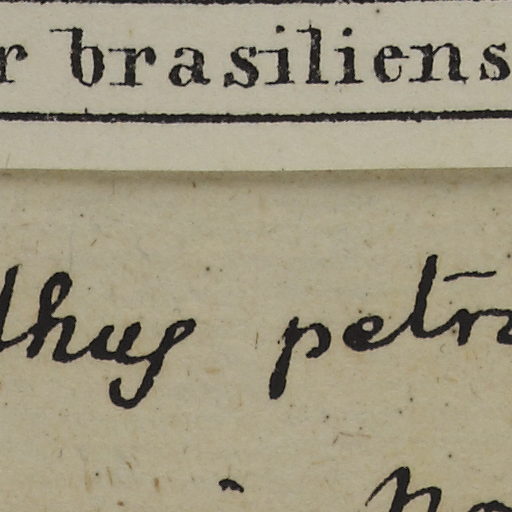 r brasiliens
lhus petra